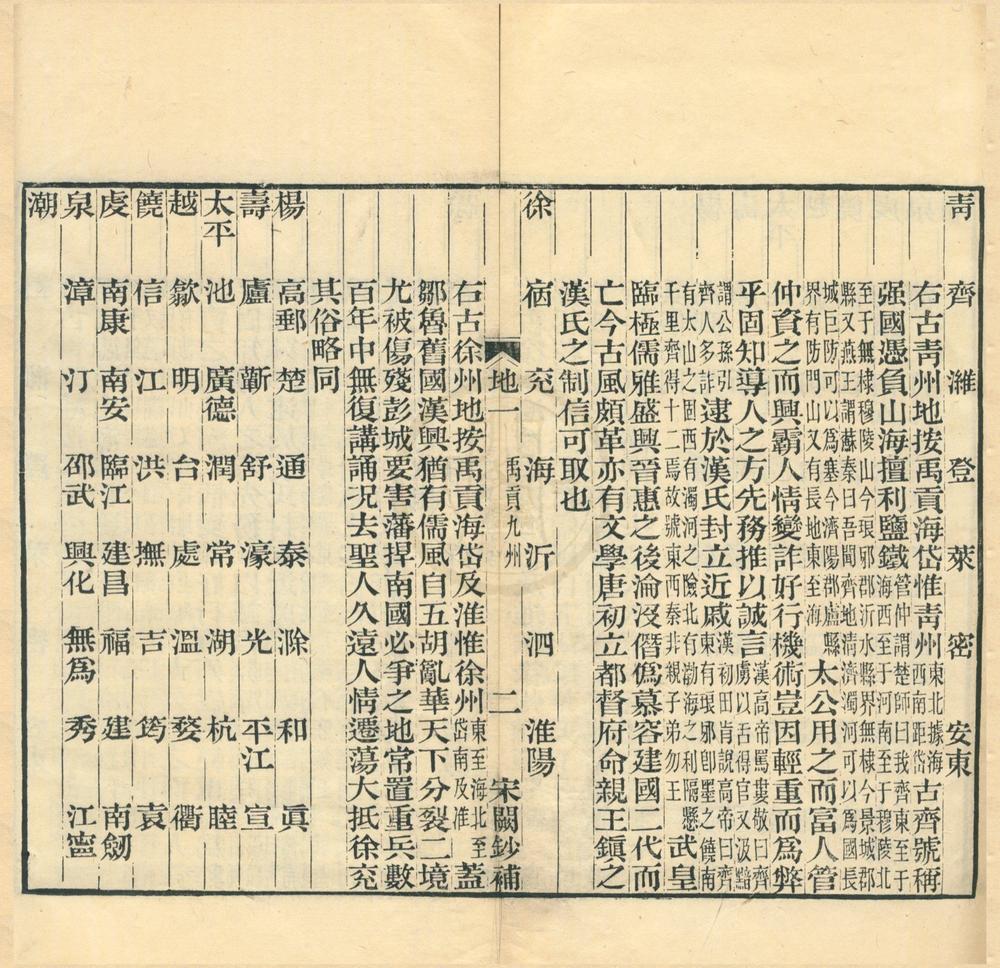 青 齊 濰 登 萊 密 安東
右古青州地按禹貢海岱惟青州東北據海西南距岱古齊號稱
强國憑負山海擅利鹽鐵管仲謂楚師曰我齊東至于海西至于河南至于穆陵北
至于無棣穆陵山今琅邪郡沂水縣界無棣今景城郡縣又燕王謂蘇秦曰吾聞齊地清濟濁河可以爲國長
城巨防可以爲塞今濟陽郡廬縣界有防門山又有長地東至海太公用之而富人管
仲資之而興霸人情變詐好行機術豈因輕重而爲弊
乎固知導人之方先務推以誠言漢高帝罵婁敬曰齊虜以舌得官又汲黯
謂公孫引齊人多詐逮於漢氏封立近戚漢初田肯說高帝曰齊東有琅邪卽墨之饒南
有太山之固西有濁河之險北有渤海之利隔懸千里齊得十二焉故號東西秦非親子弟勿王武皇
臨極儒雅盛興晉惠之後淪沒僭僞慕容建國二代而
亡今古風頗革亦有文學唐初立都督府命親王鎮之
漢氏之制信可取也
徐 宿 兖 海 沂 泗 淮陽
地一 禹貢九州 二 宋闕鈔補
右古徐州地按禹貢海岱及淮惟徐州東至海北至岱南及淮蓋
鄒魯舊國漢興猶有儒風自五胡亂華天下分裂二境
尤被傷殘彭城要害藩捍南國必爭之地常置重兵數
百年中無復講誦況去聖人久遠人情遷蕩大抵徐兖
其俗略同
楊 高郵 楚 通 泰 滁 和 眞
壽 廬 蘄 舒 濠 光 平江 宣
太平 池 廣德 潤 常 湖 杭 睦
越 歙 明 台 處 溫 婺 衢
饒 信 江 洪 撫 吉 筠 袁
虔 南康 南安 臨江 建昌 福 建 南劒
泉 漳 汀 邵武 興化 無爲 秀 江寧
潮